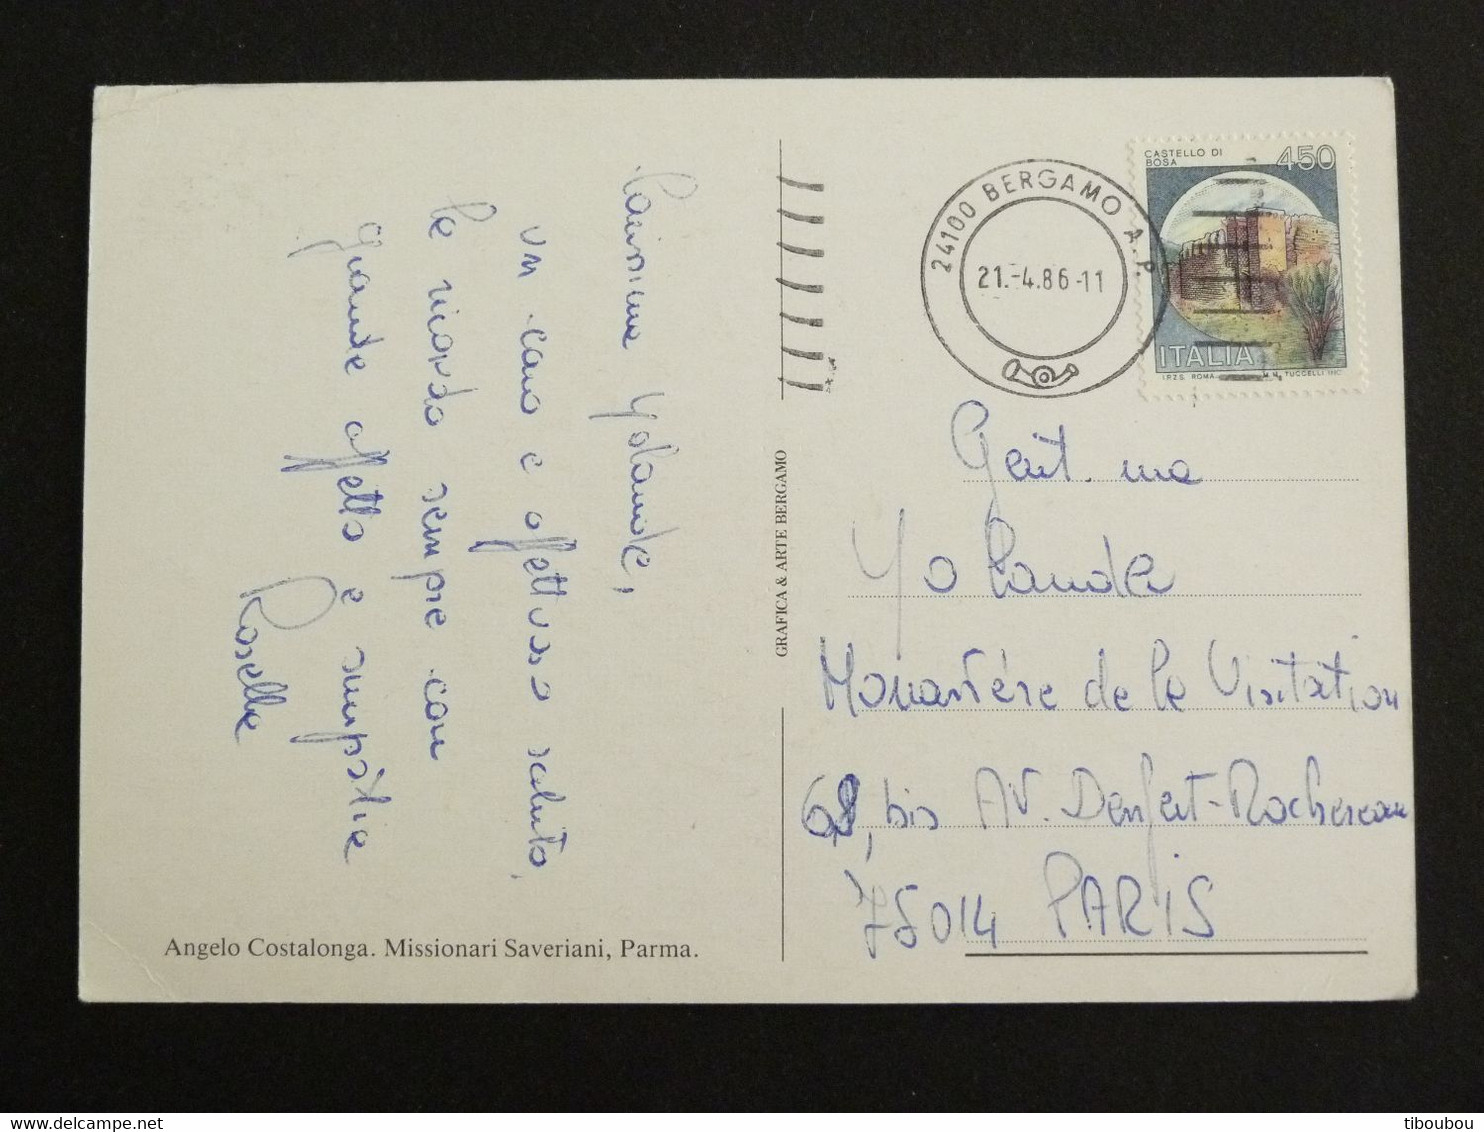 Carissima Yolande,
un caro e affettuoso saluto,
la ricordo sempre con
grande affetto e simpatia
Rosella
Angelo Costalonga. Missionari Saveriani, Parma.
GRAFICA & ARTE BERGAMO
24100 BERGAMO A.P.
21.-4.86-11
CASTELLO DI
BOSA
450
ITALIA
I.P.Z.S. ROMA
TUCCELLI INC.
Gent.ma
Yolande
Monastére de la Visitation
68, bis AV. Denfert-Rochereau
75014 PARIS
tiboubou